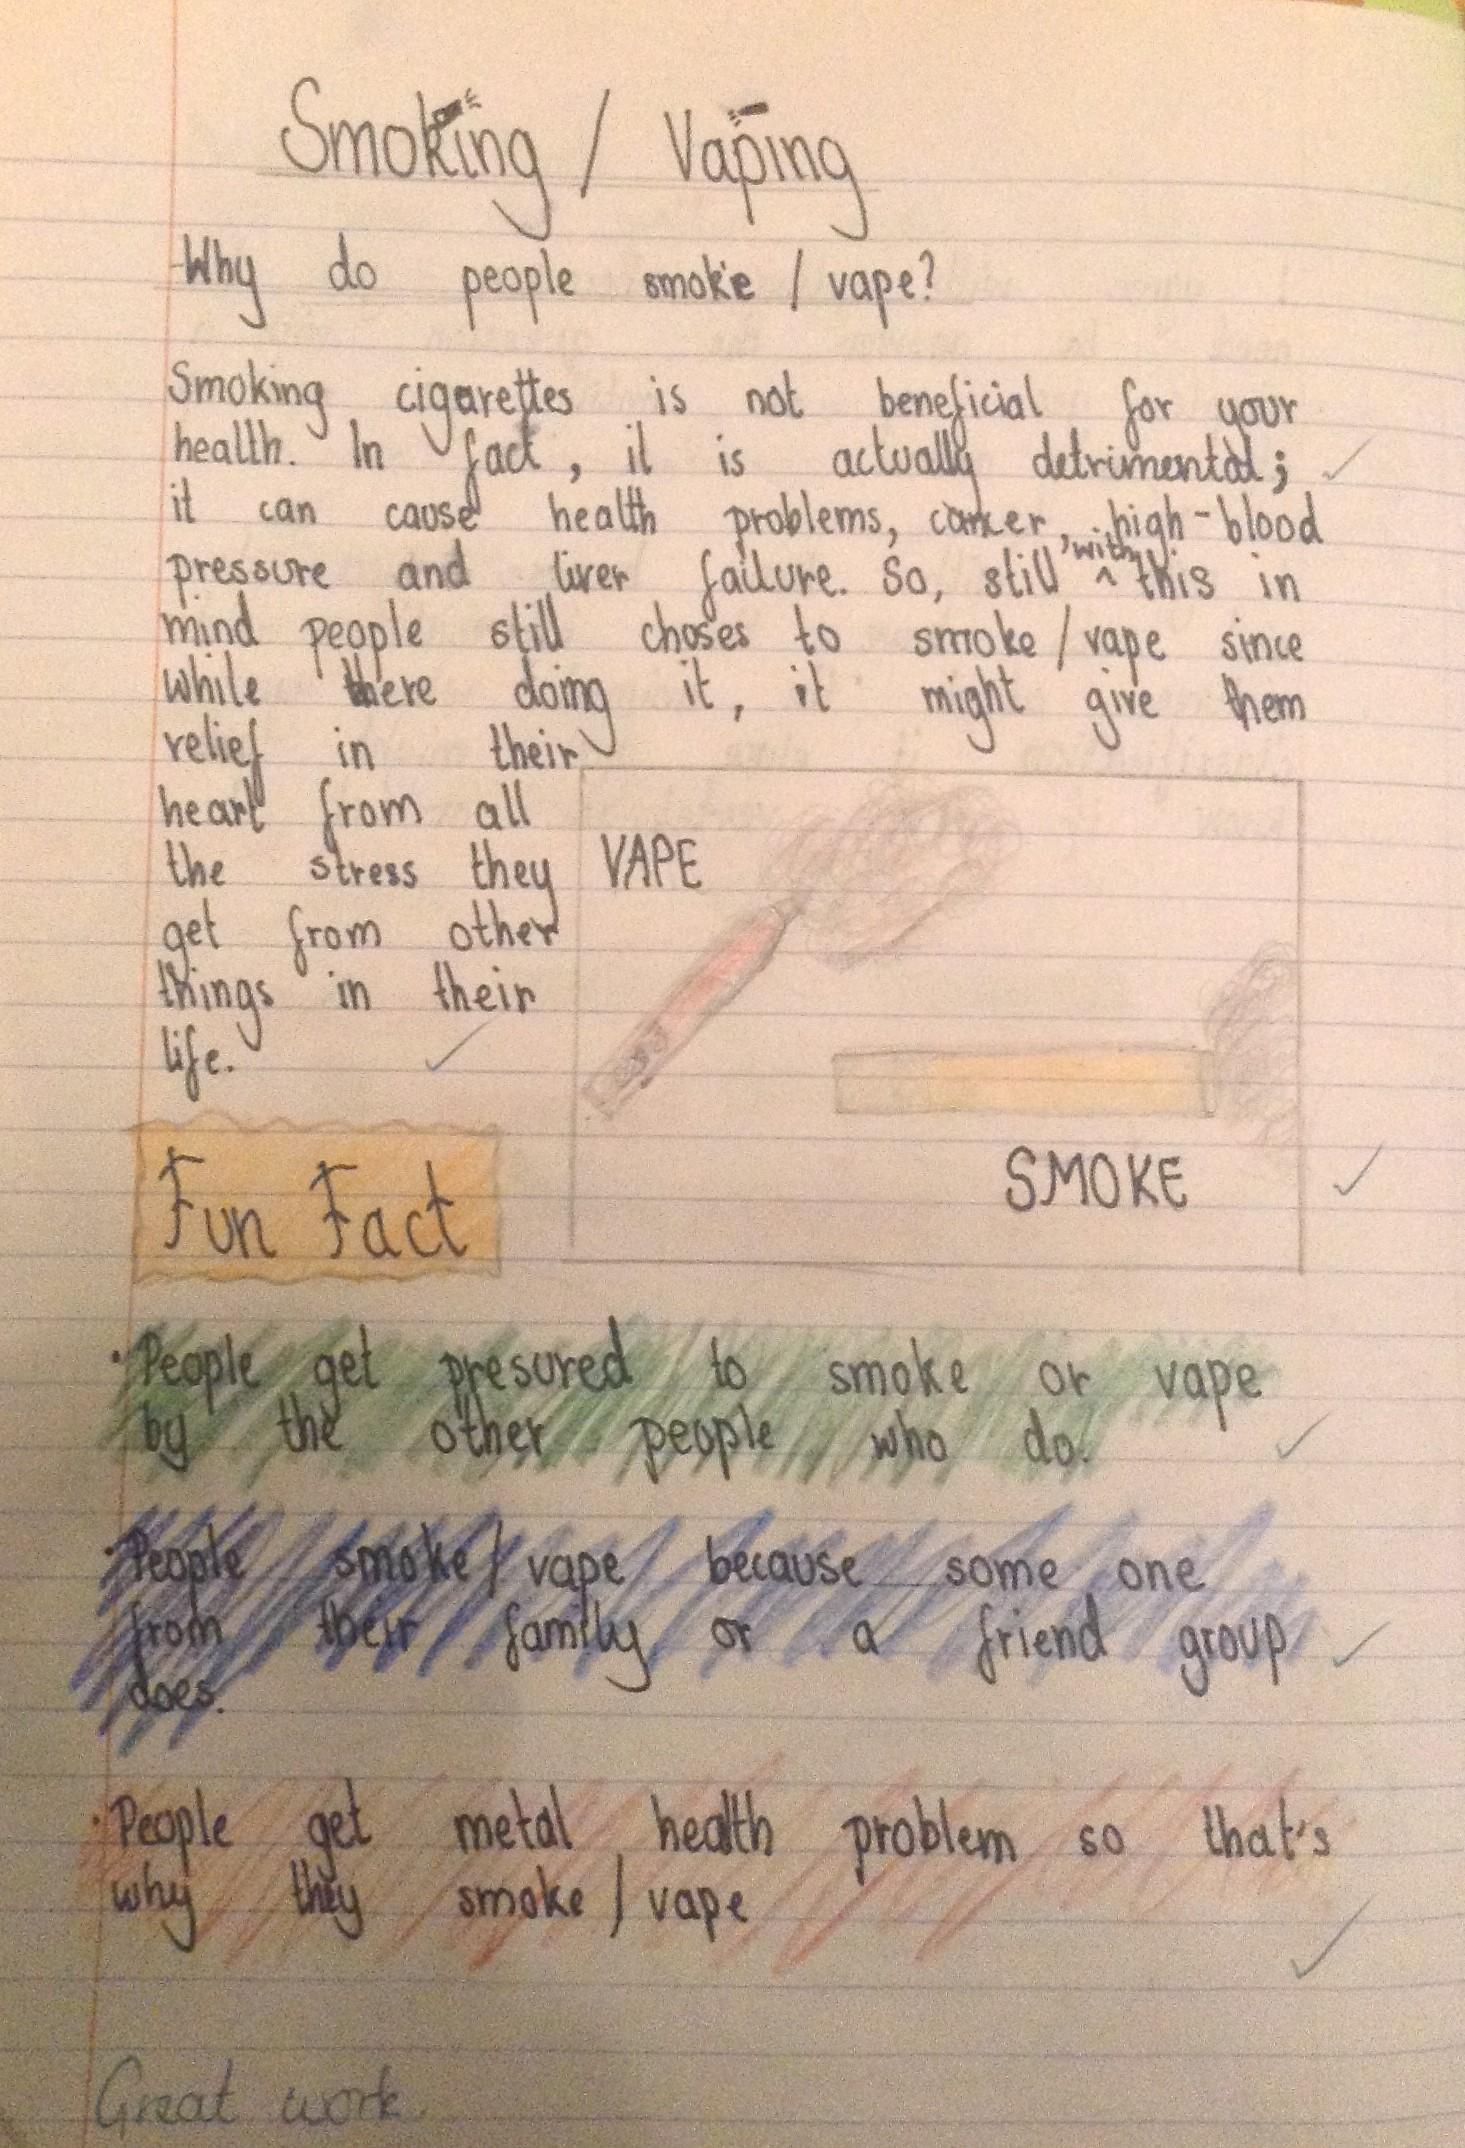 Smoking / Vaping
Why do people smoke / vape?
Smoking cigarettes is not beneficial for your
health. In fact, it is actually detrimental;
it can cause health problems, cancer, high-blood
pressure and liver failure. So, still, with this in
mind people still choses to smoke / vape since
while there doing it, it might give them
relief in their
heart from all
the stress they
get from other
things in their
life.
VAPE
SMOKE
Fun Fact
• People get presured to smoke or vape
by the other people who do.
• People smoke / vape because some one
from their family or a friend group
does.
• People get metal health problem so that's
why they smoke / vape
Great work.